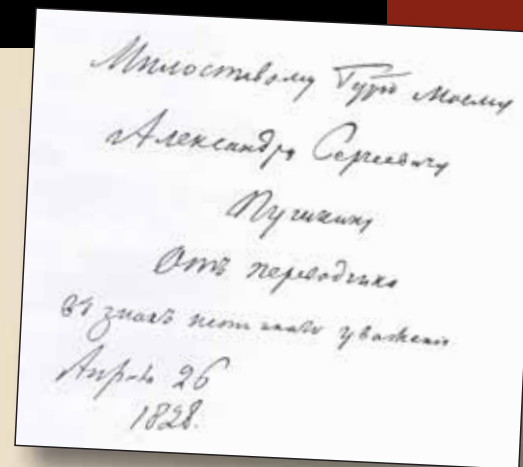 Милостивому Гдрю моему
Александру Сергеевичу
Пушкину
Отъ переводчика
въ знакъ истиннаго уваженія
26
1828.